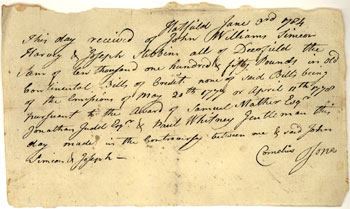 Hatfield June 3rd 1784
This day received of John Williams Simeon
Harvey & Joseph Stebbins all of Deerfield the
Sum of Ten thousand one hundred & fifty Pounds in old
Continental Bills of Credit none of said Bills being
of the Emissions of May 20th 1777 or April 11th 1778
Pursuant to the Award of Samuel Mather Esqr
Jonathan Judd Esqr & Gentleman this
day made in the Controversy between me & said John
Simeon & Joseph —
Cornelius Jones